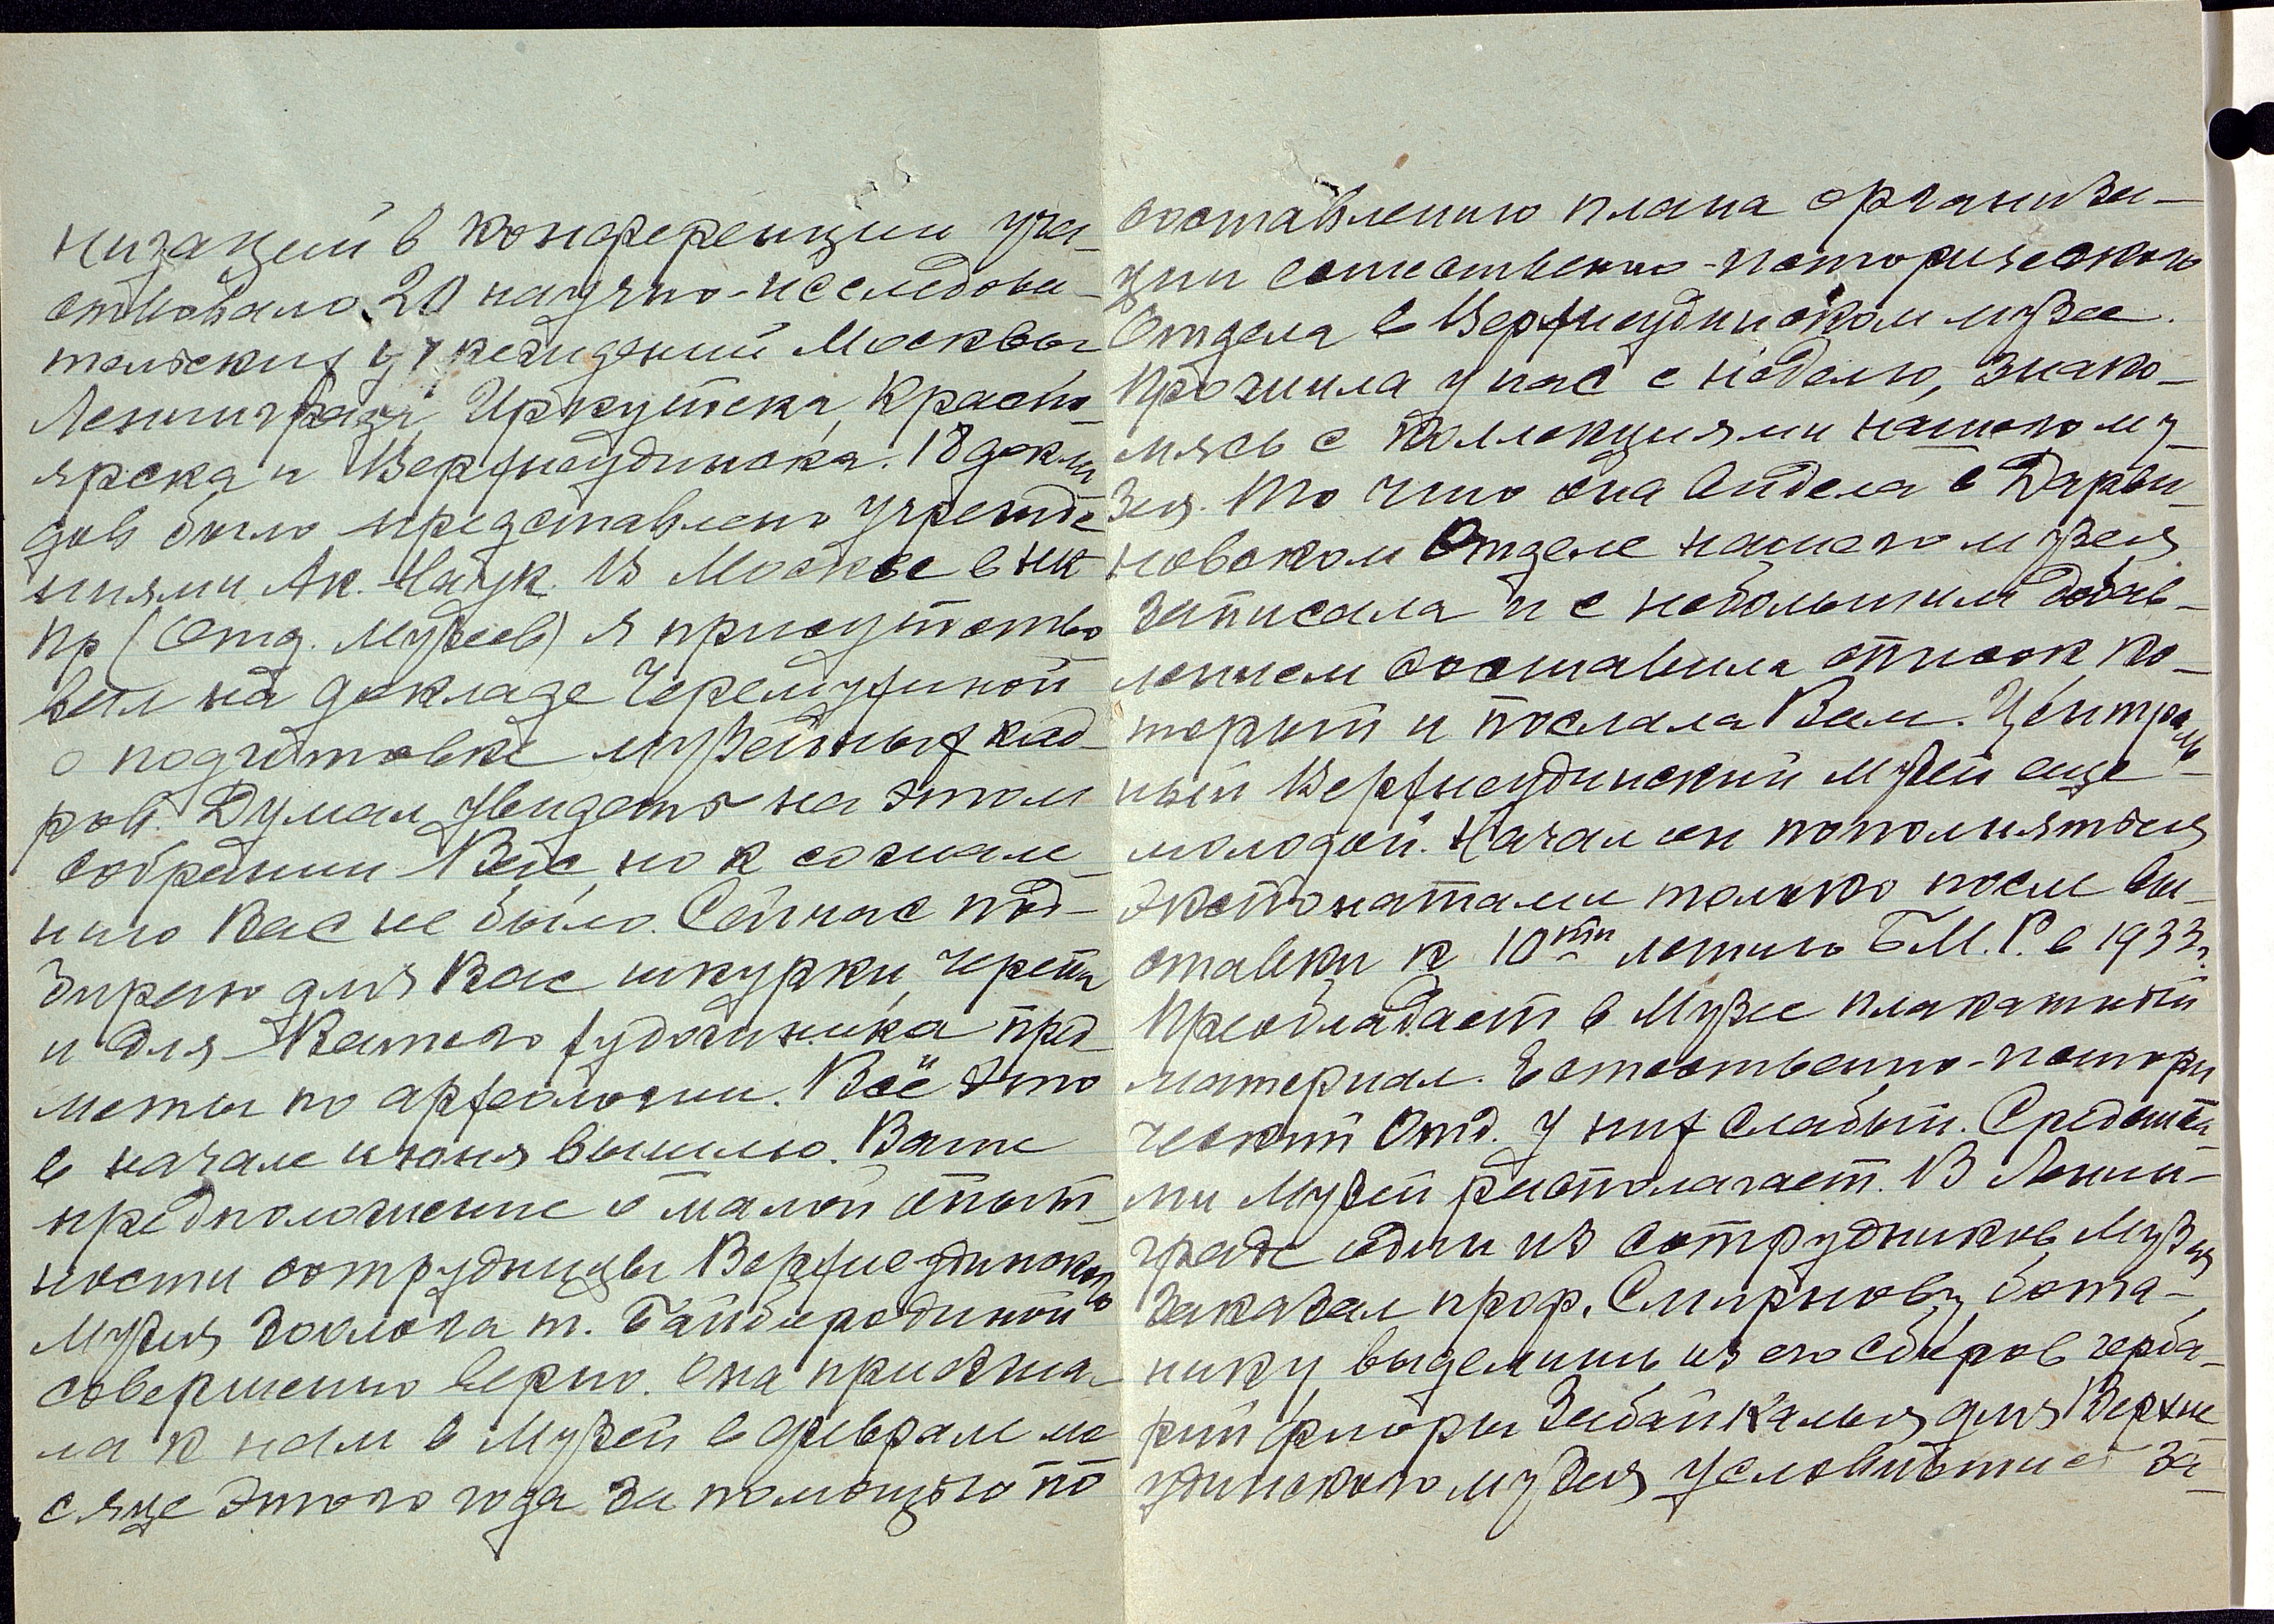 низаций в конференции уча-
ствовало 20 научно-исследова-
тельских учреждений Москвы
Ленинграда, Иркутска, Красно-
ярска и Верхнеудинска. 18 докла
дов было представлено учрежде
ниями Ак. Наук. В Москве в НК
Пр (Отд. Музеев) я присутство
вал на докладе Черемухиной
о подготовке музейных кад-
ров. Думал увидеть на этом
собрании Вас, но к сожале-
нию Вас не было. Сейчас под-
бираю для Вас шкурки, черепа
и для Вашего художника пред-
меты по археологии. Всё это
в начале июня вышлю. Ваше
предположение о малой опыт-
ности сотрудницы Верхнеудинского
Музея зоолога т. Байбородиной
совершенно верно. Она приезжа-
ла к нам в Музей в феврале ме
сяце этого года за помощью по
составлению плана организа-
ции естественно-исторического
Отдела в Верхнеудинском музее.
Прожила у нас с неделю, знако-
мясь с коллекциями нашего му-
зея. То что она видела в Дарви-
новском Отделе нашего музея
записала и с небольшим добав-
лением составила список ко-
торый и послала Вам. Централь
ный Верхнеудинский Музей еще
молодой. Начал он пополняться
экспонатами только после вы-
ставки к 10ти летию Б.М.Р. в 1933 г.
Преобладает в Музее плакатный
материал. Естественно-истори
ческий Отд. у них слабый. Средства
ми Музей располагает. В Ленин-
граде один из сотрудников Музея
заказал проф. Смирнову, бота-
нику выделить из его сборов герба-
рий флоры Забайкалья для Верхне
удинского музея условившись за-